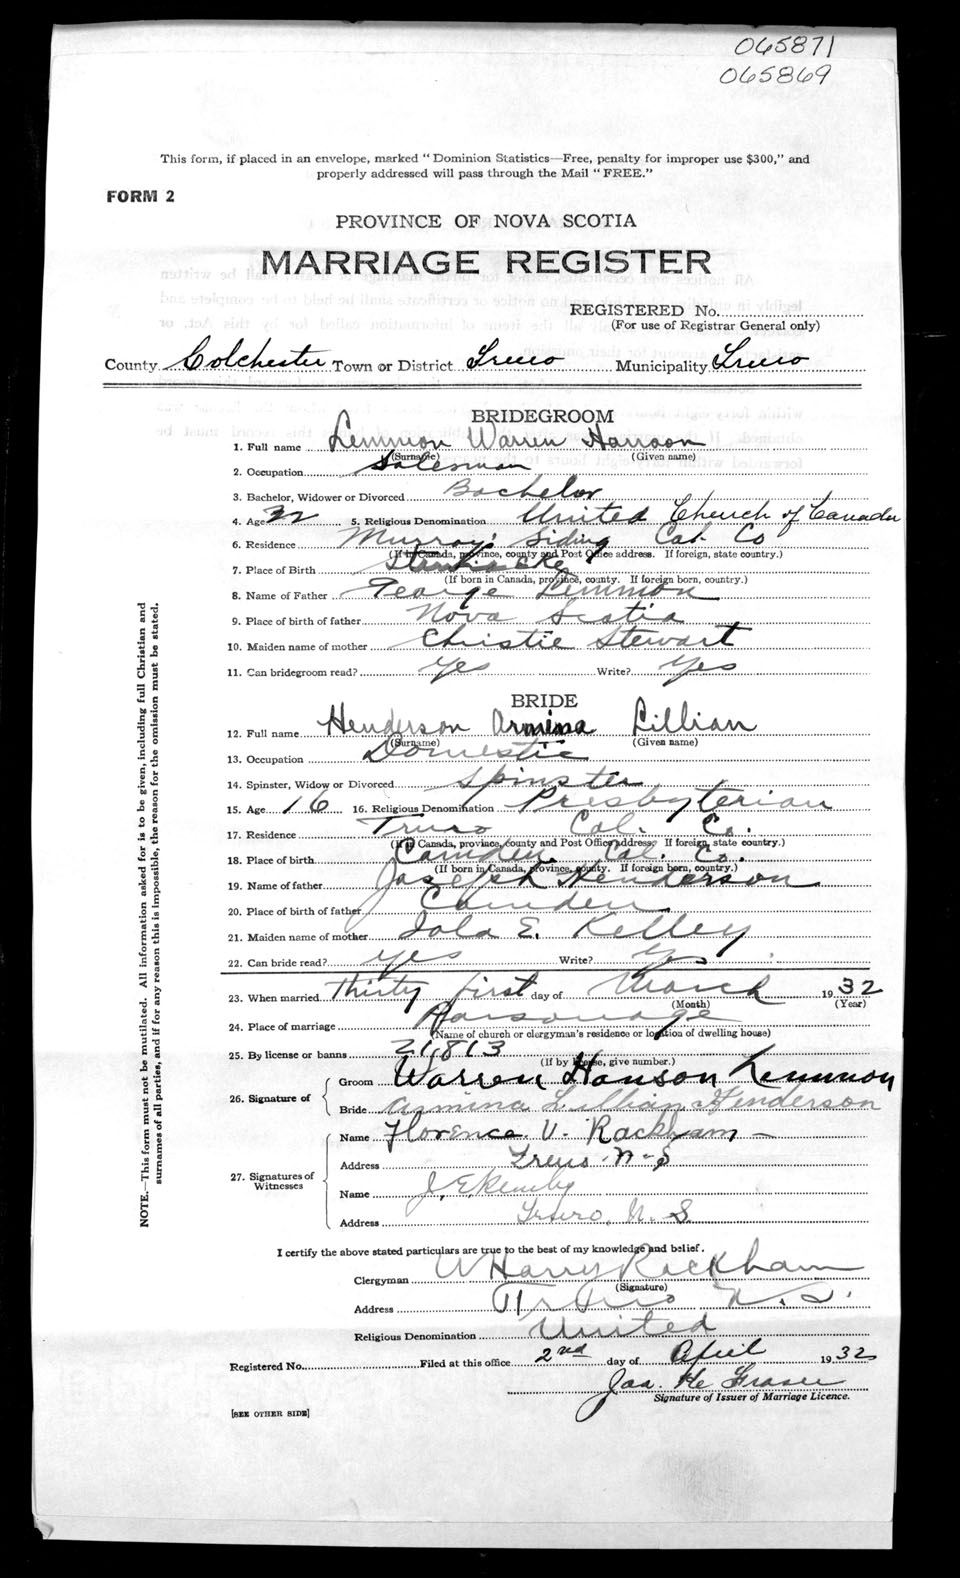 065871
065869
This form, if placed in an envelope, marked "Dominion Statistics—Free, penalty for improper use $300," and
properly addressed will pass through the Mail "FREE."
FORM 2
PROVINCE OF NOVA SCOTIA
MARRIAGE REGISTER
REGISTERED No.
(For use of Registrar General only)
County Colchester Town or District Truro Municipality Truro
BRIDEGROOM
1. Full name Lemmon Warren Hanson
(Surname) (Given name)
2. Occupation Salesman
3. Bachelor, Widower or Divorced Bachelor
4. Age 32 5. Religious Denomination United Church of Canada
6. Residence Murray's Siding Col. Co
(If in Canada, province, county and Post Office address. If foreign, state country.)
7. Place of Birth
(If born in Canada, province, county. If foreign born, country.)
8. Name of Father George Lemmon
9. Place of birth of father Nova Scotia
10. Maiden name of mother Christie Stewart
11. Can bridegroom read? Yes Write? Yes
BRIDE
12. Full name Henderson Armina Lillian
(Surname) (Given name)
13. Occupation Domestic
14. Spinster, Widow or Divorced Spinster
15. Age 16 16. Religious Denomination Presbyterian
17. Residence Truro Col. Co.
(If in Canada, province, county and Post Office address. If foreign, state country.)
18. Place of birth Camden Col. Co.
(If born in Canada, province, county. If foreign born, country.)
19. Name of father Joseph Henderson
20. Place of birth of father Camden
21. Maiden name of mother Iola E. Kelley
22. Can bride read? Yes Write? Yes
23. When married Thirty first day of March 1932
(Month) (Year)
24. Place of marriage Parsonage
(Name of church or clergyman's residence or location of dwelling house)
25. By license or banns 21,813
(If by license, give number.)
26. Signature of Groom Warren Hanson Lemmon
Bride Armina Lillian Henderson
27. Signatures of Witnesses
Name Florence V. Rackham
Address Truro N-S
Name J. E.
Address Truro, N. S.
I certify the above stated particulars are true to the best of my knowledge and belief.
Clergyman W Harry Rackham
(Signature)
Address Truro N. S.
Religious Denomination United
Registered No. Filed at this office 2nd day of April 1932
Jas. Fraser
Signature of Issuer of Marriage Licence.
[SEE OTHER SIDE]
NOTE.—This form must not be mutilated. All information asked for is to be given, including full Christian and
surnames of all parties, and if for any reason this is impossible, the reason for the omission must be stated.